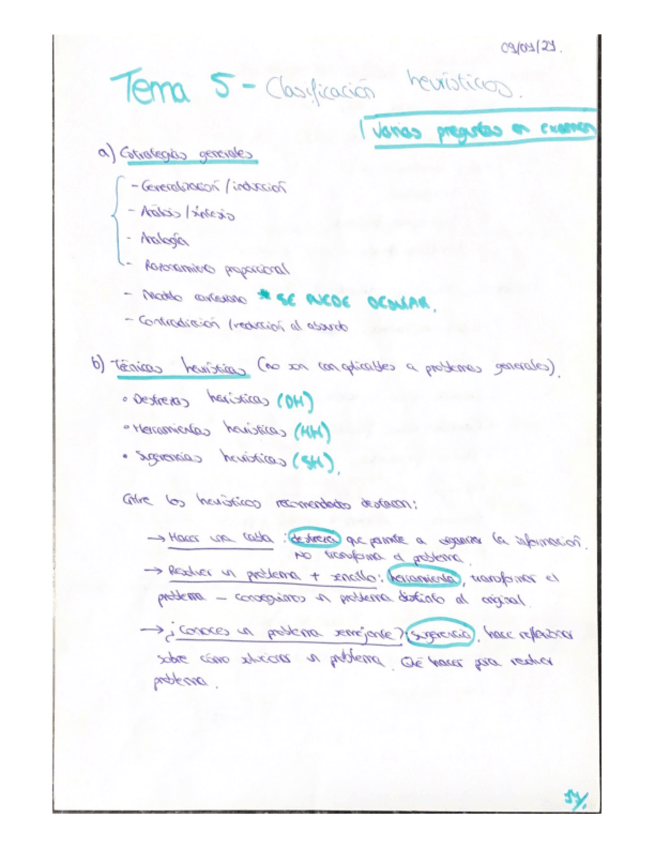 Tema 5 - Clasificación heurísticos.
Varias preguntas en examen
a) Estrategias generales
- Generalización / inducción
- Análisis / síntesis
- Analogía
- Razonamiento proporcional
- Modelo cartesiano * SE PUEDE OCULTAR.
- Contradicción / reducción al absurdo
b) Técnicas heurísticas (no son tan aplicables a problemas generales).
• Destrezas heurísticas (DH)
• Herramientas heurísticas (HH)
• Sugerencias heurísticas (SH).
Entre los heurísticos recomendados destacan:
→ Hacer una tabla : destreza que permite a organizar la información.
No transforma el problema.
→ Resolver un problema + sencillo: herramienta, transformar el
problema - conseguimos un problema distinto al original.
→ ¿Conoces un problema semejante? sugerencia, hace reflexionar
sobre cómo solucionar un problema. Qué hacer para resolver
problema.